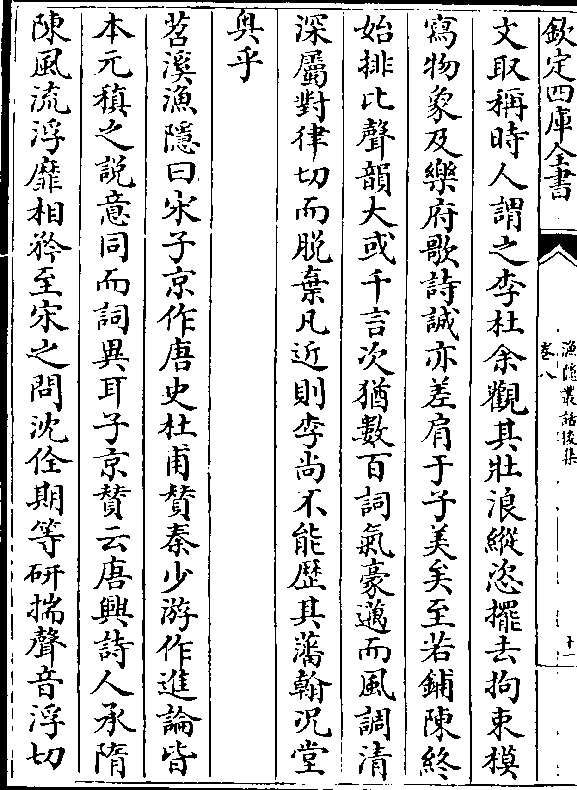 欽定四庫全書
漁隱叢話後集
卷八
十一
文取稱時人謂之李杜余觀其壯浪縱恣擺去拘束模
寫物象及樂府歌詩誠亦差肩于子美矣至若鋪陳終
始排比聲韻大或千言次猶數百詞氣豪邁而風調清
深屬對律切而脱棄凡近則李尚不能歴其藩翰况堂
奥乎
苕溪漁隱曰宋子京作唐史杜甫賛秦少游作進論皆
本元稹之說意同而詞異耳子京賛云唐興詩人承隋
陳風流浮靡相矜至宋之問沈佺期等研揣聲音浮切